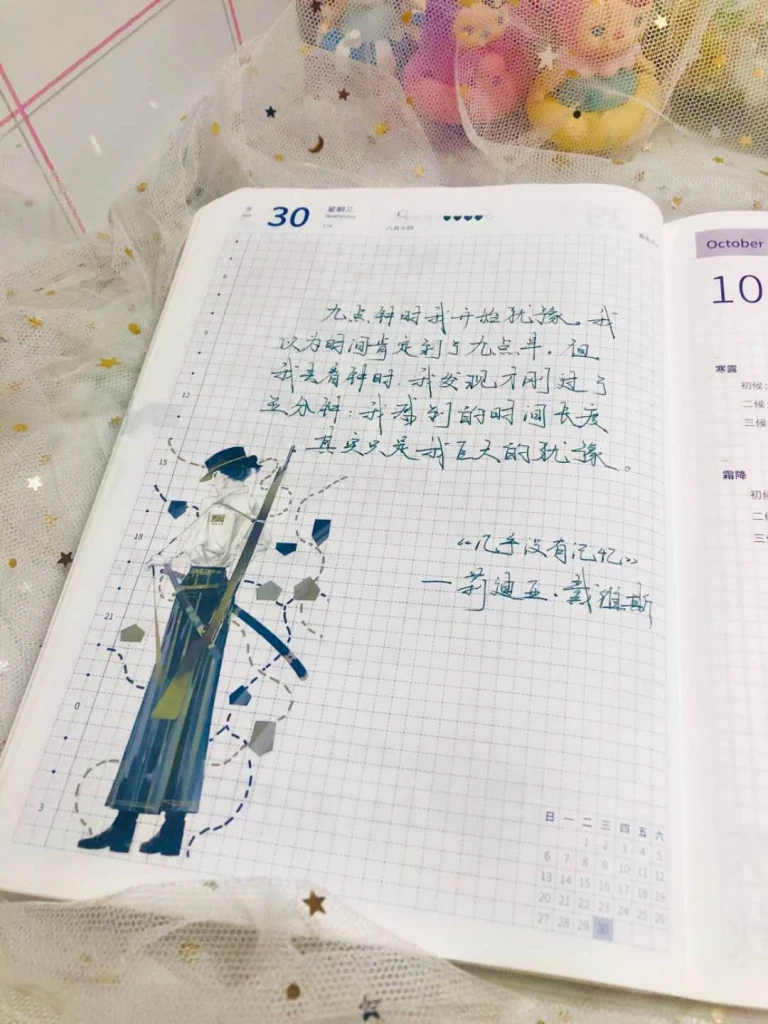 30
星期三
Wednesday
八月十四
6
9
12
15
18
21
0
3
九点钟时我开始犹豫。我
以为时间肯定到了九点半，但
我去看钟时，我发现才刚过了
五分钟：我感到的时间长度
其实只是我巨大的犹豫。
《几乎没有记忆》
—莉迪亚·戴维斯
日 一 二 三 四 五 六
1 2 3 4 5
6 7 8 9 10 11 12
13 14 15 16 17 18 19
20 21 22 23 24 25 26
27 28 29 30
October
10
寒露
初候：
二候：
三候
霜降
初候
二候
三候